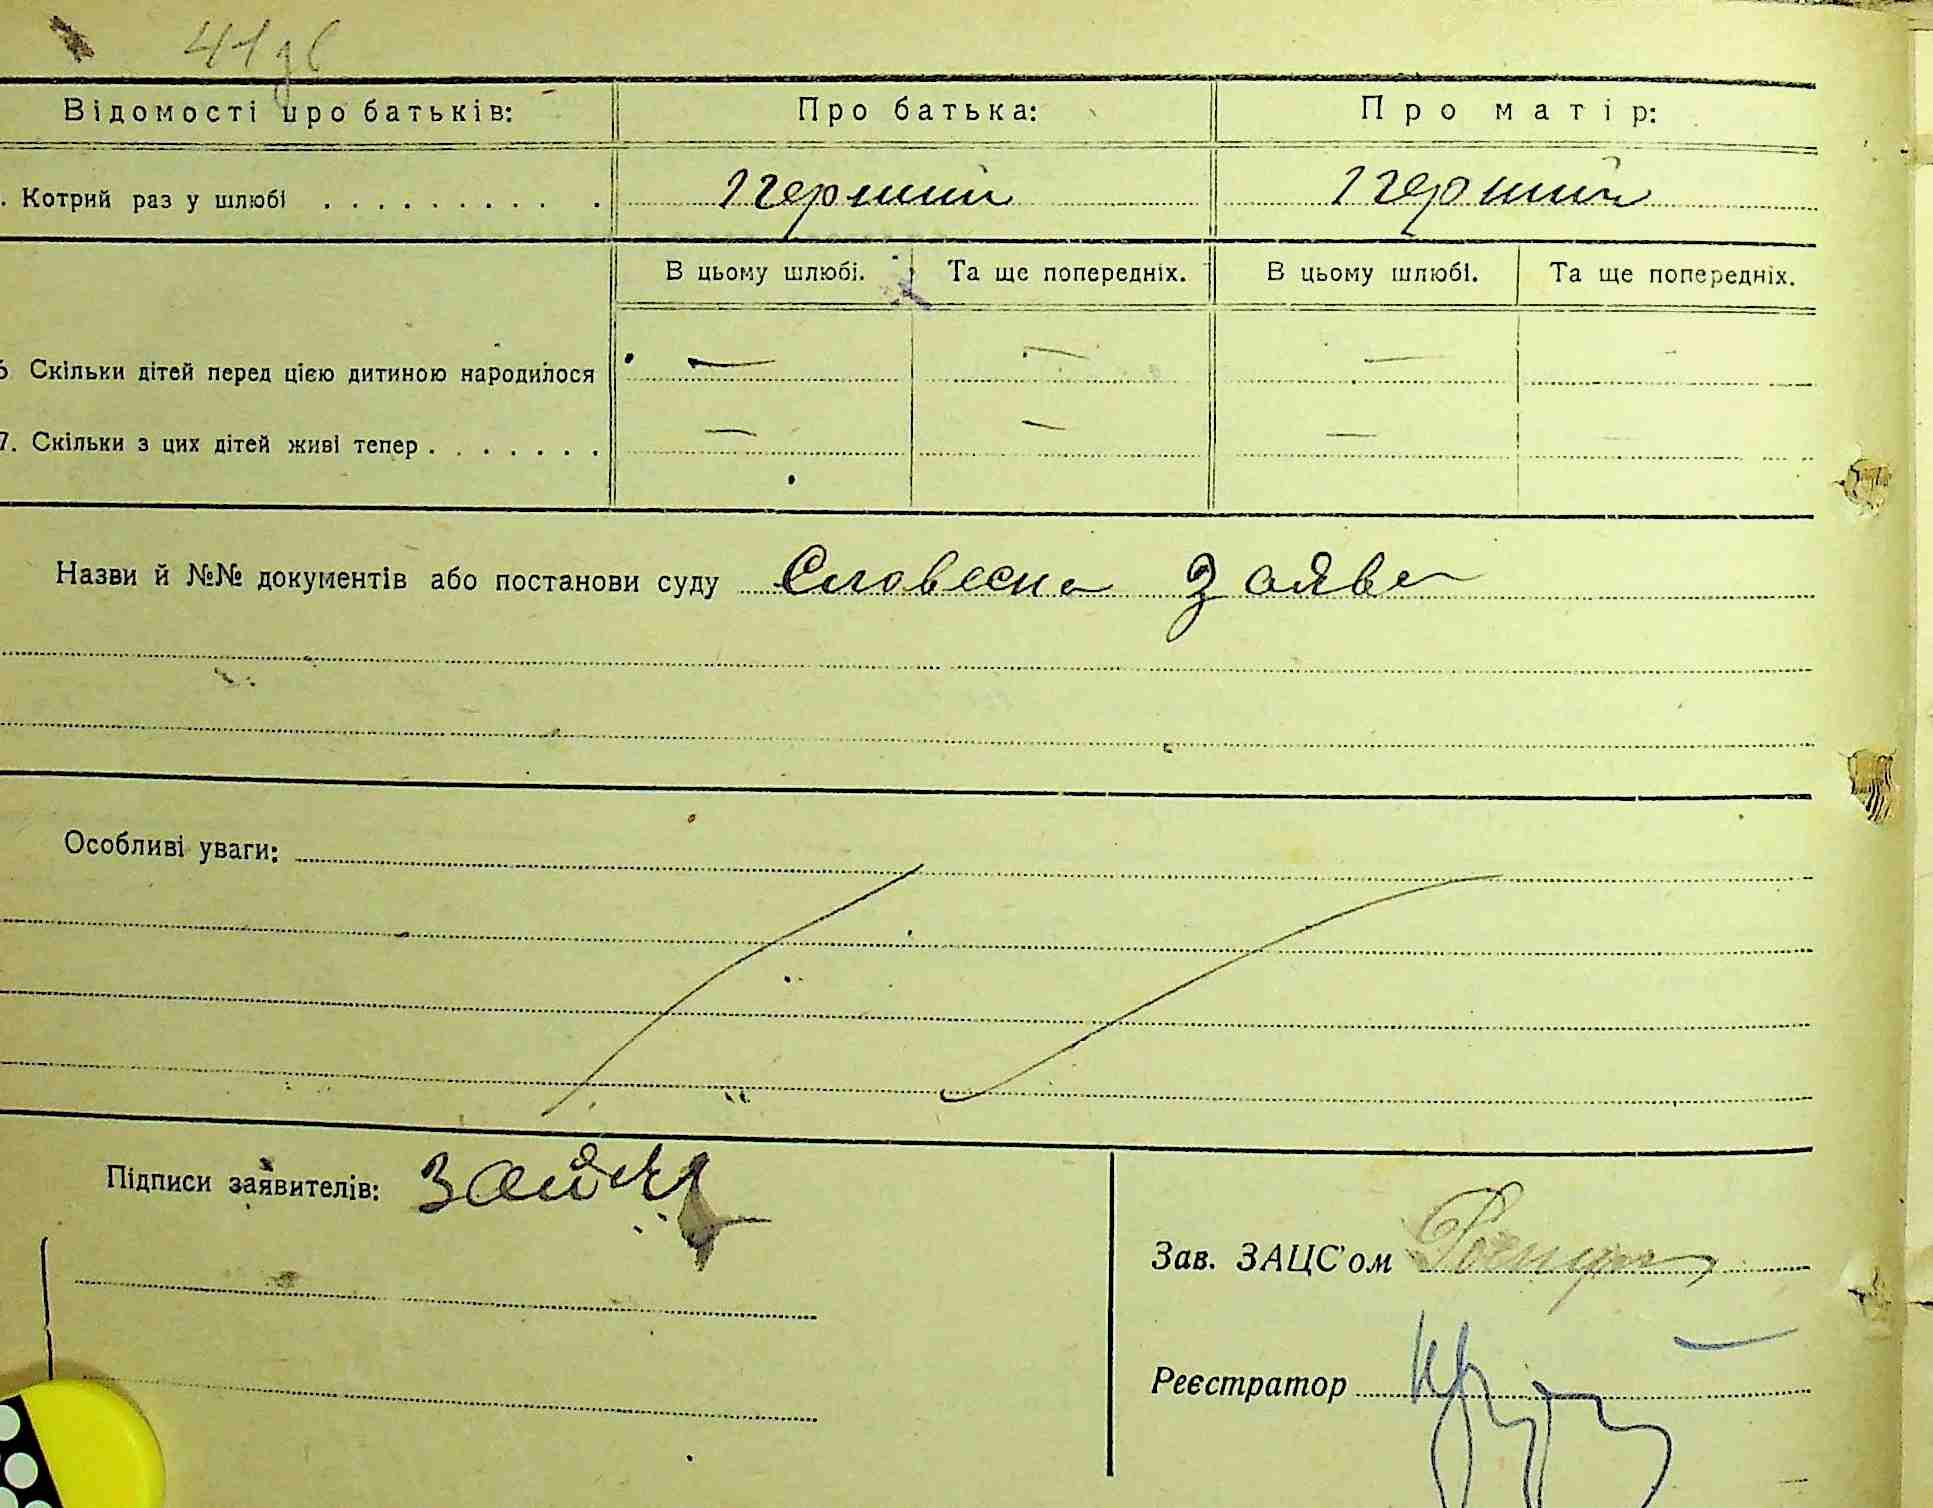 41
Відомості про батьків: Про батька: Про матір:
. Котрий раз у шлюбі . . . . . . . . . . Перший Перший
В цьому шлюбі. Та ще попередніх. В цьому шлюбі. Та ще попередніх.
6 Скільки дітей перед цією дитиною народилося — — — —
7. Скільки з цих дітей живі тепер . . . . . . . — — — —
Назви й №№ документів або постанови суду Словесна Заява
Особливі уваги:
Підписи заявителів:
Зав. ЗАЦС'ом
Реєстратор